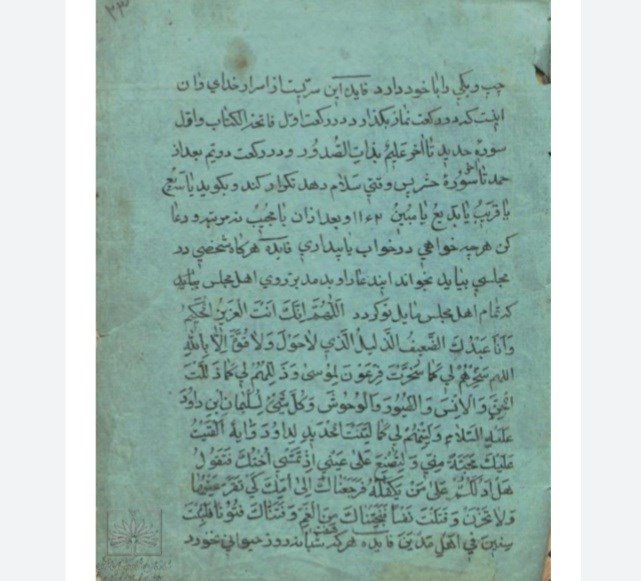 ٢٣
چپ و یکی را با خود دارد فایده این سرّیست از اسرار خدای و آن
اینست که دو رکعت نماز بکذارد و در رکعت اول فاتحة الکتاب و اول
سورۀ حدید تا آخر علیم بذات الصدور و در رکعت دویم بعد از
حمد تا آخر سورۀ حشر پس و قتی سلام دهد تکرار کند و بکوید یا سمیع
یا قریب یا بدیع یا مبین ١١٤٢ و بعد از ان یا مجیب نه مرتبه و دعا
کن هرچه خواهی در خواب یا بیداری فایده هرکاه شخصی در
مجلسی بیاید بخواند ایندعا را و بدمد بر روی اهل مجلس
که تمام اهل مجلس مایل تو کردد اللهم انک انت العزیز الحکیم
وانا عبدک الضعیف الذلیل الذی لا حول ولا قوة الا بالله
اللهم سخرهم لی کما سخرت فرعون لموسی وذللهم لی کما ذللت
الجن والانس والطیور والوحوش وکل شئ لسلیمان ابن داود
علیه السلام ولینهم لی کما لینت الحدید لداود وایة القیت
علیک محبة منی ولتصنع علی عینی اذ تمشی اختک فتقول
هل ادلکم علی من یکفله فرجعناک الی امک کی تقر عینها
ولا تحزن وقتلت نفسا فنجیناک من الغم وفتناک فتونا فلبثت
سنین فی اهل مدین فایده هرکه شبانه روز حیوانی نخورد